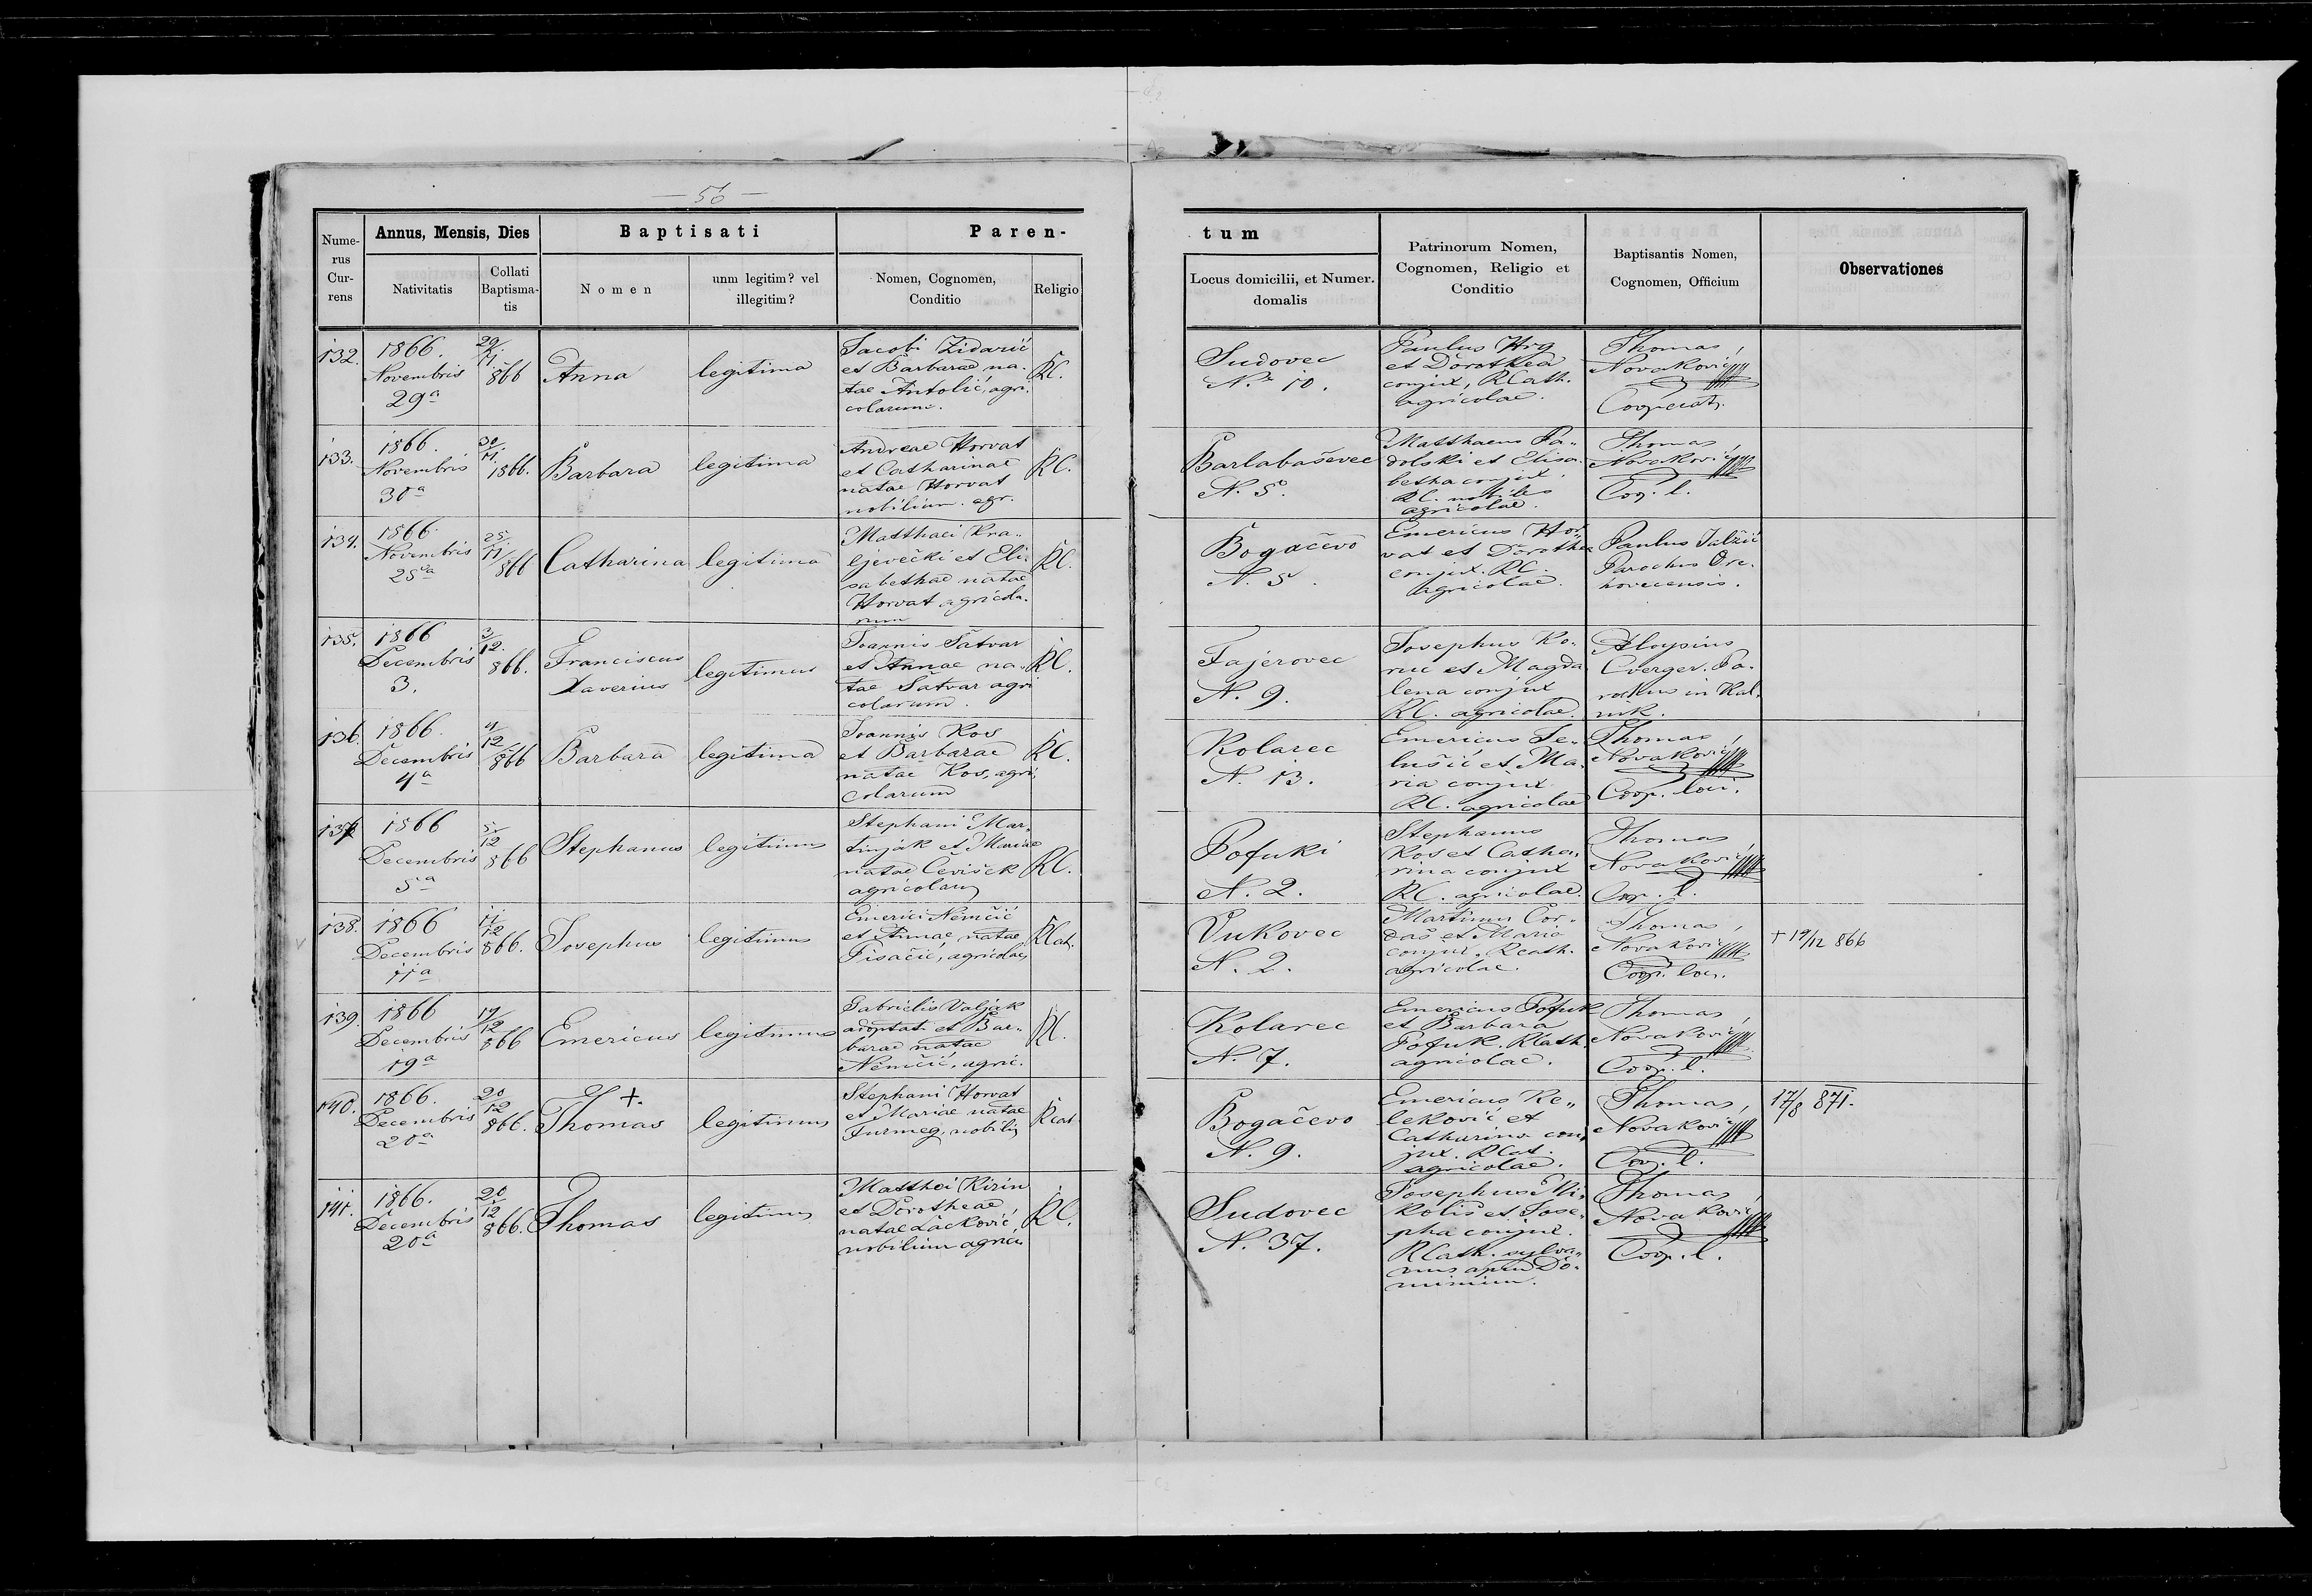 — 56 —
Nume-
rus
Cur-
rens
Annus, Mensis, Dies
Nativitatis
Collati
Baptisma-
tis
Baptisati
Nomen
unm legitim? vel
illegitim?
Paren-
Nomen, Cognomen,
Conditio
Religio
tum
Locus domicilii, et Numer.
domalis
Patrinorum Nomen,
Cognomen, Religio et
Conditio
Baptisantis Nomen,
Cognomen, Officium
Observationes
132.
1866.
Novembris
29a
29/11
866
Anna
legitima
Jacobi Zidarić
et Barbarae na-
tae Antolić, agri-
colarum.
RC.
Sudovec
N. 10.
Paulus Hrg
et Dorothea
conjux, RCath.
agricolae.
Thomas
Novaković
Cooperat.
133.
1866.
Novembris
30a
30/11
1866.
Barbara
legitima
Andreae Horvat
et Catharinae
natae Horvat
nobilium. agr.
RC.
Barlabaševec
N. 5.
Matthaeus Pa-
dolski et Elisa-
betha conjux.
RC. nobiles
agricolae.
Thomas
Novaković
Coop. l.
134.
1866.
Novembris
25a
25/11
866
Catharina
legitima
Matthaei Kra-
ljevečki et Eli-
sabethae natae
Horvat agricola-
rum
RC.
Bogačevo
N. 5.
Emericus Hor-
vat et Dorothea
conjux. RC.
agricolae.
Paulus Jalžić
Parochus Ore-
hovecensis.
135.
1866
Decembris
3.
3/12
866.
Franciscus
Xaverius
legitimus
Joannis Šatvar
et Annae na-
tae Šatvar agri
colarum.
RC.
Fajerovec
N. 9.
Josephus Ko-
ruc et Magda
lena conjux
RC. agricolae.
Aloysius
Cverger. Pa-
rochus in Kal-
nik.
136.
1866.
Decembris
4a
4/12
866
Barbara
legitima
Joannis Kos
et Barbarae
natae Kos, agri-
colarum
RC.
Kolarec
N. 13.
Emericus Se-
lušić et Ma-
ria conjux
RC. agricolae
Thomas
Novaković
Coop. loci.
137
1866
Decembris
5a
5/12
866
Stephanus
legitimus
Stephani Mar-
tinjak et Mariae
natae Čeviček
agricolarum
RC.
Pofuki
N. 2.
Stephanus
Kos et Catha-
rina conjux
RC. agricolae.
Thomas
Novaković
Coop. l.
138.
1866
Decembris
11a
11/12
866.
Josephus
legitimus
Emerici Nemčić
et Annae natae
Pisačić, agricolar.
RCat.
Vukovec
N. 2.
Martinus Cor-
daš et Maria
conjux. Rcath.
agricolae.
Thomas
Novaković
Coop. loci.
† 19/12 866
139.
1866
Decembris
19a
19/12
866
Emericus
legitimus
Gabrielis Valjak
adoptati et Bar-
barae natae
Nemčić, agric.
RC.
Kolarec
N. 7.
Emericus Pofuk
et Barbara
Pofuk. RCath.
agricolae.
Thomas
Novaković
Coop. l.
140.
1866.
Decembris
20a
20/12
866.
†.
Thomas
legitimus
Stephani Horvat
et Mariae natae
Furmeg, nobilium
Rcat.
Bogačevo
N. 9.
Emericus Re-
leković et
Catharina con-
jux. RCat.
agricolae.
Thomas
Novaković
Coop. l.
17/8 871.
141.
1866.
Decembris
20a
20/12
866.
Thomas
legitimus
Matthei Kirin
et Dorotheae
natae Lacković,
nobilium agric.
RC.
Sudovec
N. 37.
Josephus Mi-
kolić et Jose-
pha conjux.
RCath. sylva-
nus apud Do-
minium.
Thomas
Novaković
Coop. l.